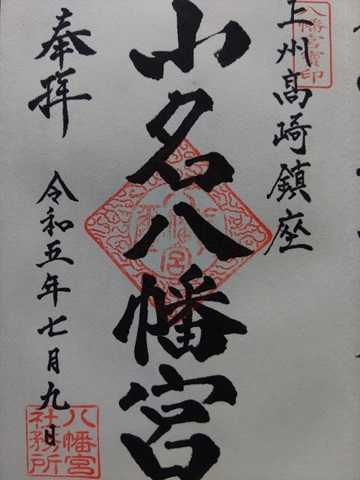 上州高崎鎮座
八幡宮寳印
小名八幡宮
奉拝
令和五年七月九日
八幡宮
社務所